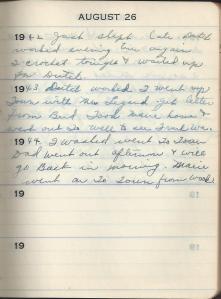 AUGUST 26
1942 Jack slept late. Dutch
worked evening Eve again
I crochet tonight & waited up
for Dutch.
1943 Dutch worked I went up
Town with Mrs got letter
from Bud. Took Marie home &
went out to well to see
1944 I washed went to Town
Dad went out afternoon & will
go Back in morning. Marie
went on to Town from work
19
19